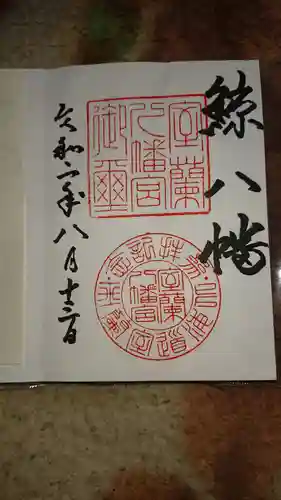 鯨八幡
室蘭
八幡宮
御璽
令和二年八月十三日
室蘭
八幡宮